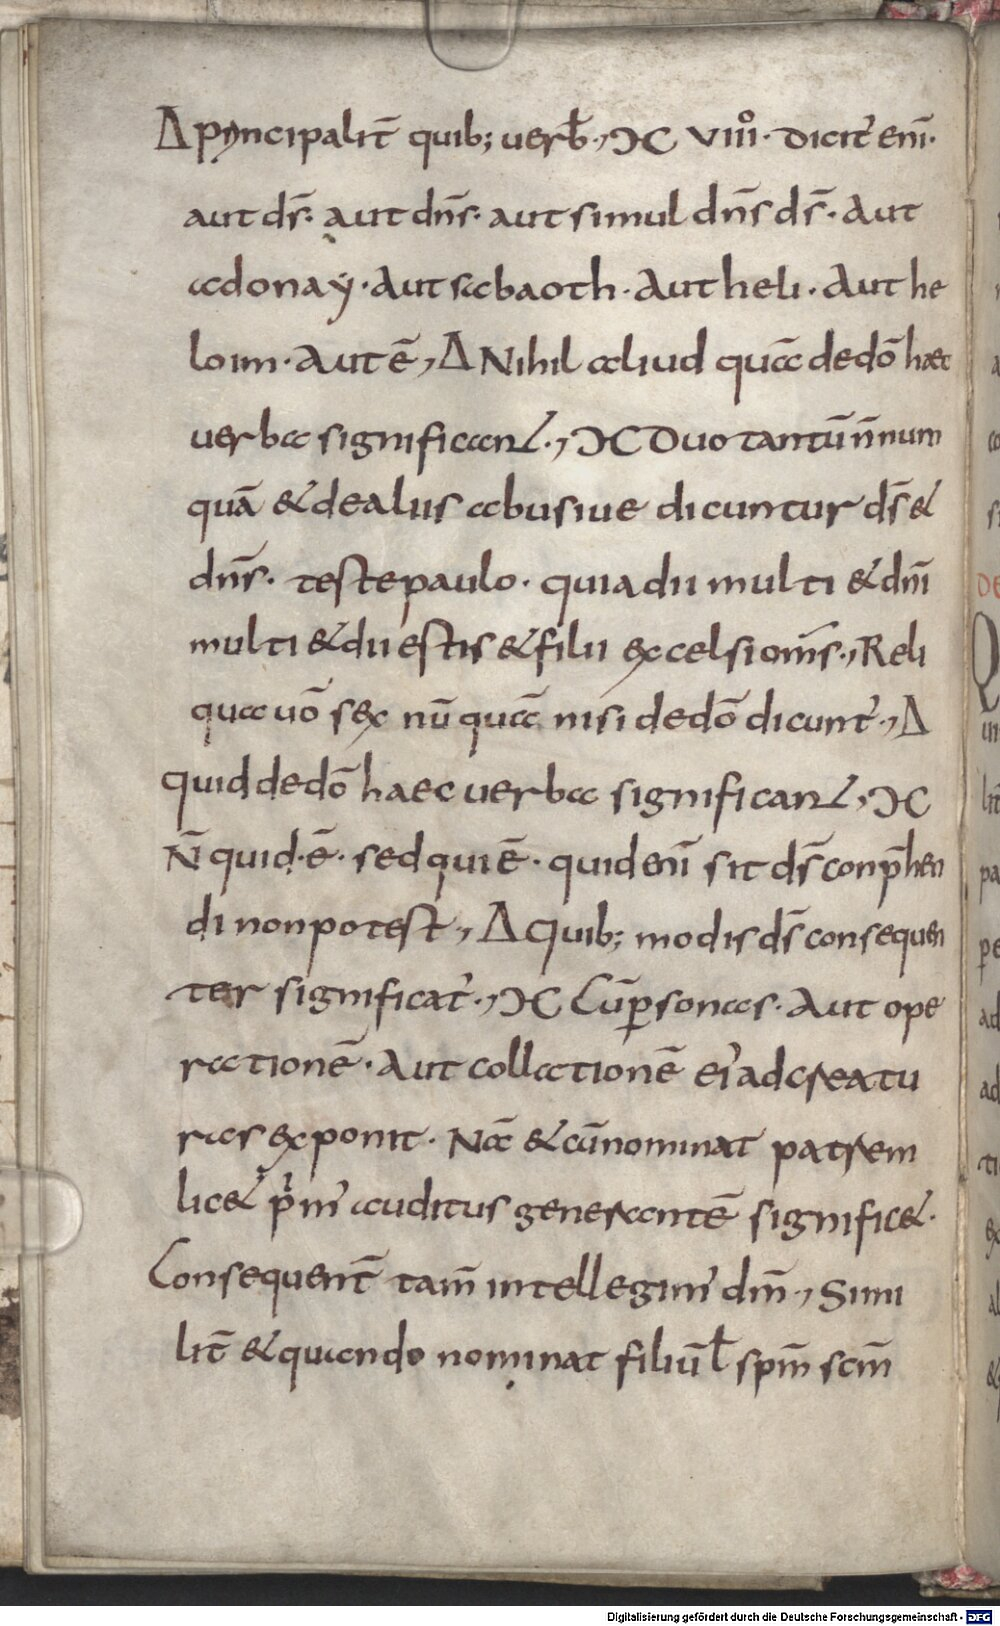 Δ Principalit̄ quib; verb̄., ΙC VIIIIº. dicit̄ enī.
aut ds̄. aut dn̄s. aut simul dn̄s ds̄. Aut
adonaẏ. Aut sabaoth. Aut heli. Aut he
loim. Aut ē, Δ Nihil aliud quā de dō haec
verba significant., ΙC Duo tantū n̄ num
quā & de aliis abusiue dicuntur ds̄ &
dn̄s. teste paulo. quia dii multi & dn̄i
multi & dii estis & filii excelsi om̄s., Reli
qua uō sex nū quā nisi de dō dicunt̄., Δ
quid de dō haec uerba significant, ΙC
N̄ quid. ē. sed qui ē. quid enī sit ds̄ conp̄hen
di non potest., Δ Quib; modis ds̄ consequen
ter significat̄., ΙC Cū p̱sonas. Aut ope
rationē. Aut collationē ei' ad creatu
ras exponit. Nā & cū nominat patrem
lic& p̄m' auditus generantē signific&.
Consequent̄ tam̄ intellegim' dm̄., Simi
lit̄ & quando nominat filiū ł spm̄ scm̄
Digitalisierung gefördert durch die Deutsche Forschungsgemeinschaft - DFG